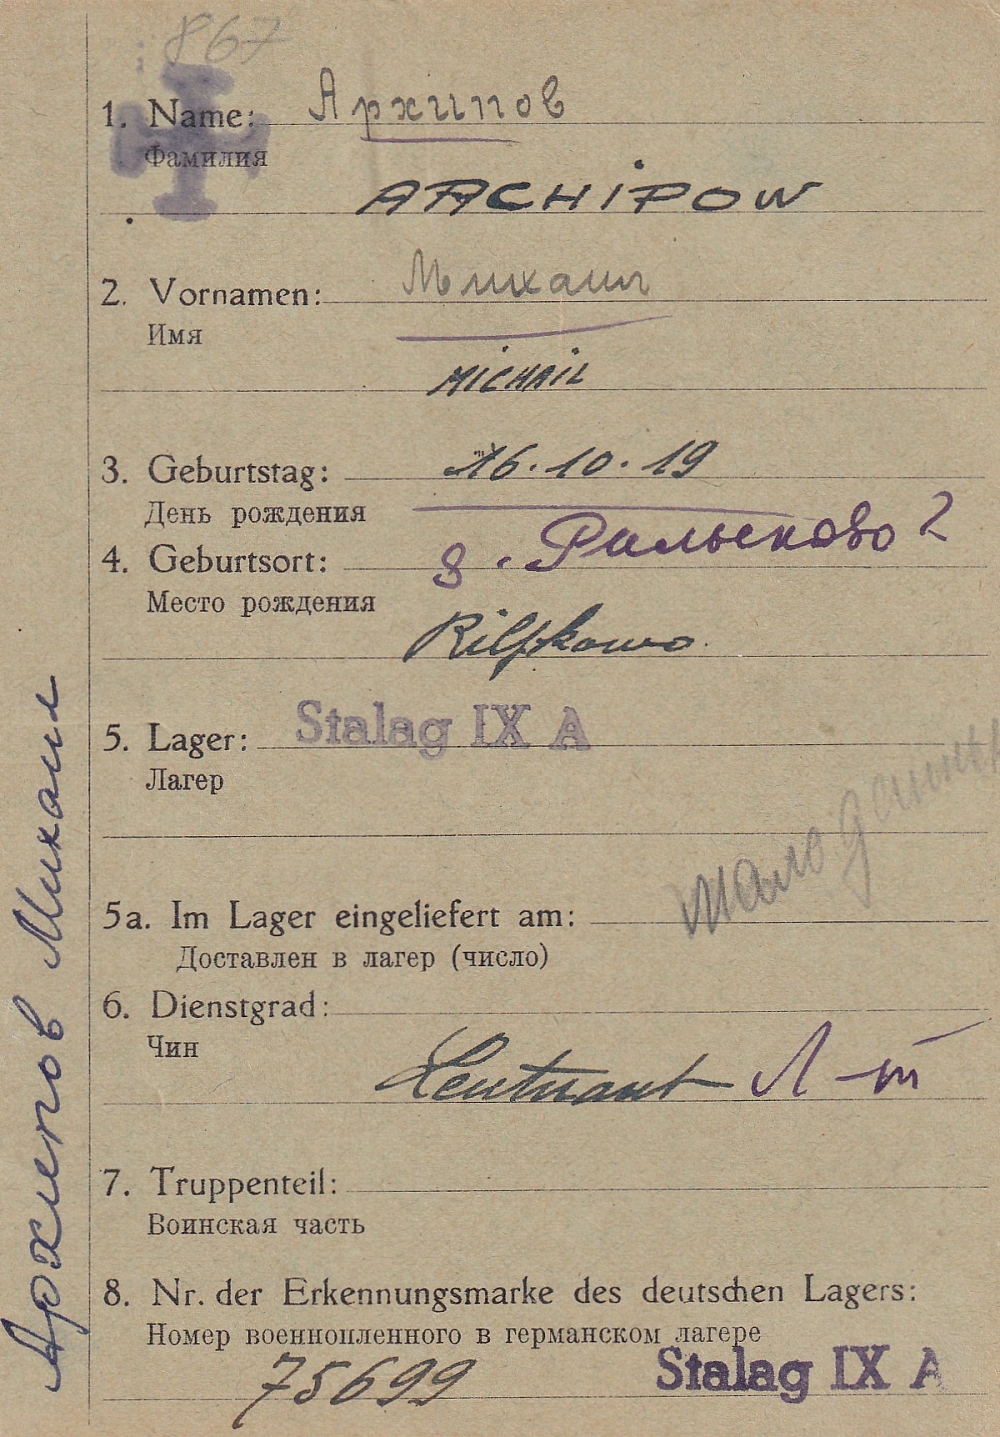 867
1. Name: Архипов
Фамилия
ARCHIPOW
2. Vornamen: Михаил
Имя
MICHAIL
3. Geburtstag: 16.10.19
День рождения
4. Geburtsort: Рильсково ?
Место рождения
Rilskowo.
5. Lager: Stalag IX A
Лагер
мало данных
5a. Im Lager eingeliefert am:
Доставлен в лагер (число)
6. Dienstgrad:
Чин
Leutnant Л-т
7. Truppenteil:
Воинская часть
8. Nr. der Erkennungsmarke des deutschen Lagers:
Номер военнопленного в германском лагере
75699 Stalag IX A
Архипов Михаил